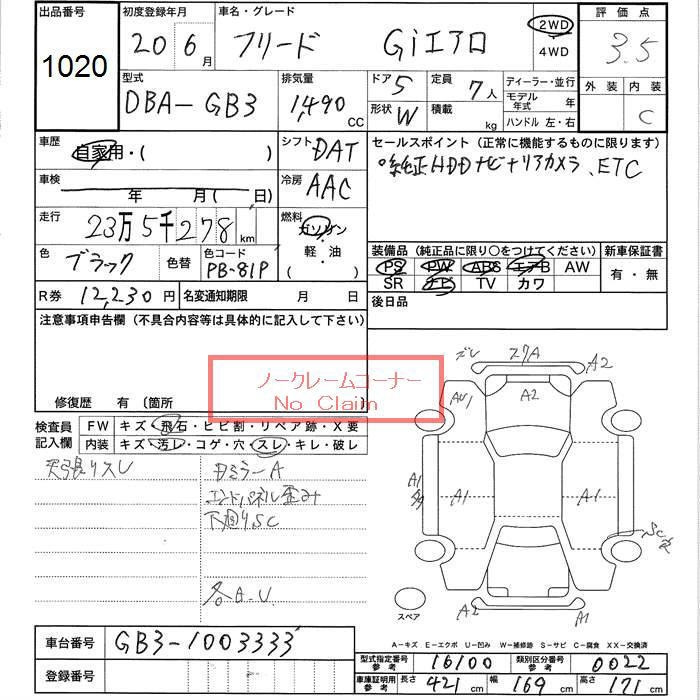 出品番号 初度登録年月 車名・グレード 評価点
1020 20 6月 フリード Giエアロ 2WD 4WD 3.5
型式 排気量 ドア 5 定員 7人 ディーラー・並行 外装 内装
DBA-GB3 1,490 CC 形状 W 積載 kg モデル年式 年 C
ハンドル 左・右
車歴 自家用・( ) シフト DAT セールスポイント(正常に機能するものに限ります)
車検 年 月( 日) 冷房 AAC 純正HDDナビ リアカメラ、ETC
走行 23万5千278km 燃料 ガソリン・軽・油 ( )
色 ブラック 色替 色コード PB-81P 装備品(純正品に限り○をつけてください) 新車保証書
PS PW ABS エアB AW 有・無
SR ナビ TV カワ
R券 12,230円 名変通知期限 月 日 後日品
注意事項申告欄(不具合内容等は具体的に記入して下さい)
ノークレームコーナー
No Claim
修復歴 有(箇所
検査員記入欄 FW キズ・飛石・ヒビ割・リペア跡・X要
内装 キズ・汚レ・コゲ・穴・スレ・キレ・破レ
天張りスレ
ミラーA
エンドパネル歪み
下廻りSC
各A.U.
A2
A2
AU1
A1
A1
A1
A2
A1
スペア
車台番号 GB3-1003333
登録番号
A-キズ E-エクボ U-凹み W-補修跡 S-サビ C-腐食 XX-交換済
型式指定番号 参考 16100 類別区分番号 参考 0022
車庫証明用 参考 長さ 421cm 幅 169cm 高さ 171cm